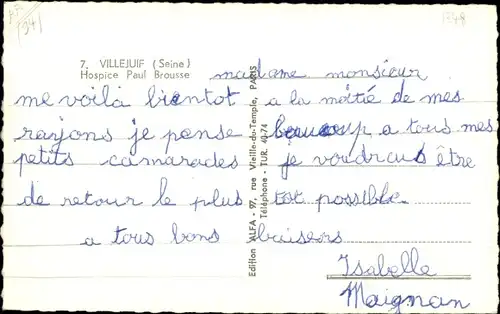 7. VILLEJUIF (Seine)
Hospice Paul Brousse
madame monsieur
me voilà bientot a la moitié de mes
rayons je pense beaucoup a tous mes
petits camarades je voudrais être
de retour le plus tot possible
a tous bons baisers
Isabelle
Maignan
Edition ALFA - 97, rue Vieille-du-Temple, PARIS
Téléphone - TUR. 40-74